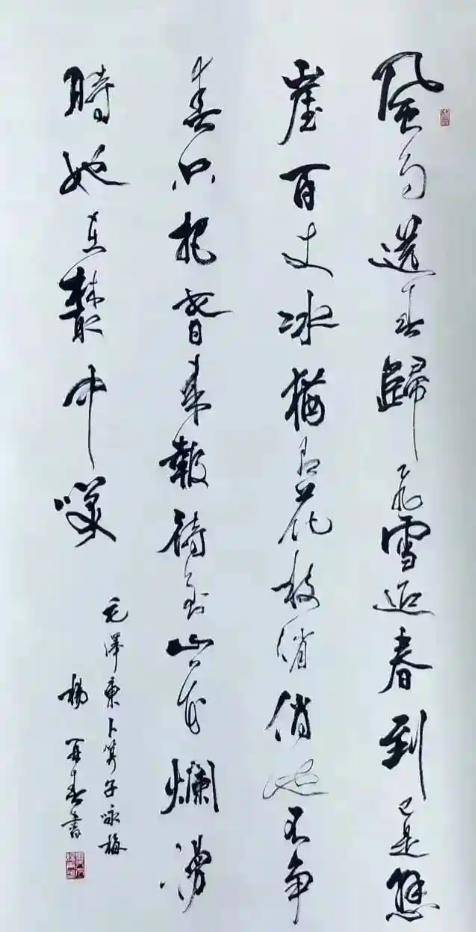 風雨送春歸飛雪迎春到已是懸
崖百丈冰猶有花枝俏俏也不争
春只把春来報待到山花爛漫
時她在叢中咲
毛澤東卜算子咏梅
楊再春書